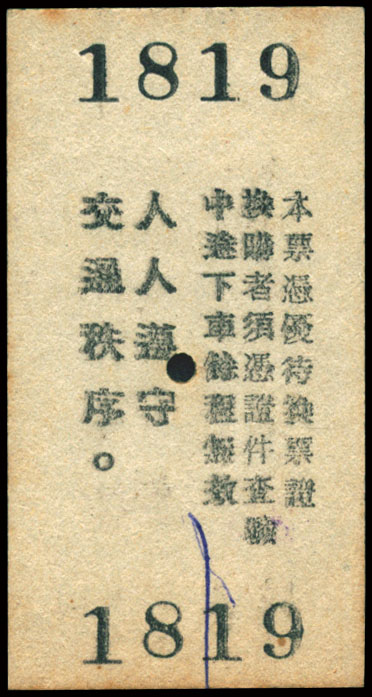 1819
本票憑優待換票證
換購者須憑證件查驗
中途下車餘程無效
人人遵守
交通秩序。
1819